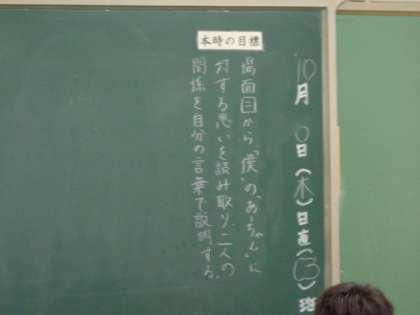 10月 日(木)日直( )班
本時の目標
場面三から「僕」の「おっちゃん」に
対する思いを読み取り、二人の
関係を自分の言葉で説明する。